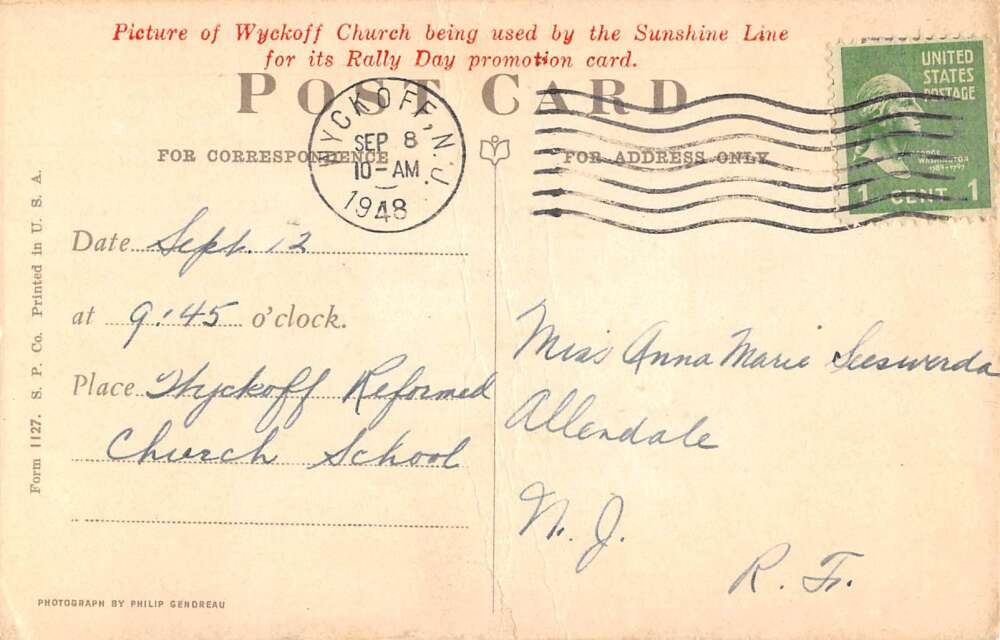 Picture of Wyckoff Church being used by the Sunshine Line
for its Rally Day promotion card.
POST CARD
WYCKOFF, N.J.
SEP 8
10-AM
1948
UNITED
STATES
POSTAGE
WASHINGTON
1 CENT 1
FOR CORRESPONDENCE
FOR ADDRESS ONLY
Date Sept. 12
at 9:45 o'clock.
Place Wyckoff Reformed
Church School
Miss Anna Marie
Allendale
N. J.
R. F.
Form 1127. S. P. Co. Printed in U. S. A.
PHOTOGRAPH BY PHILIP GENDREAU